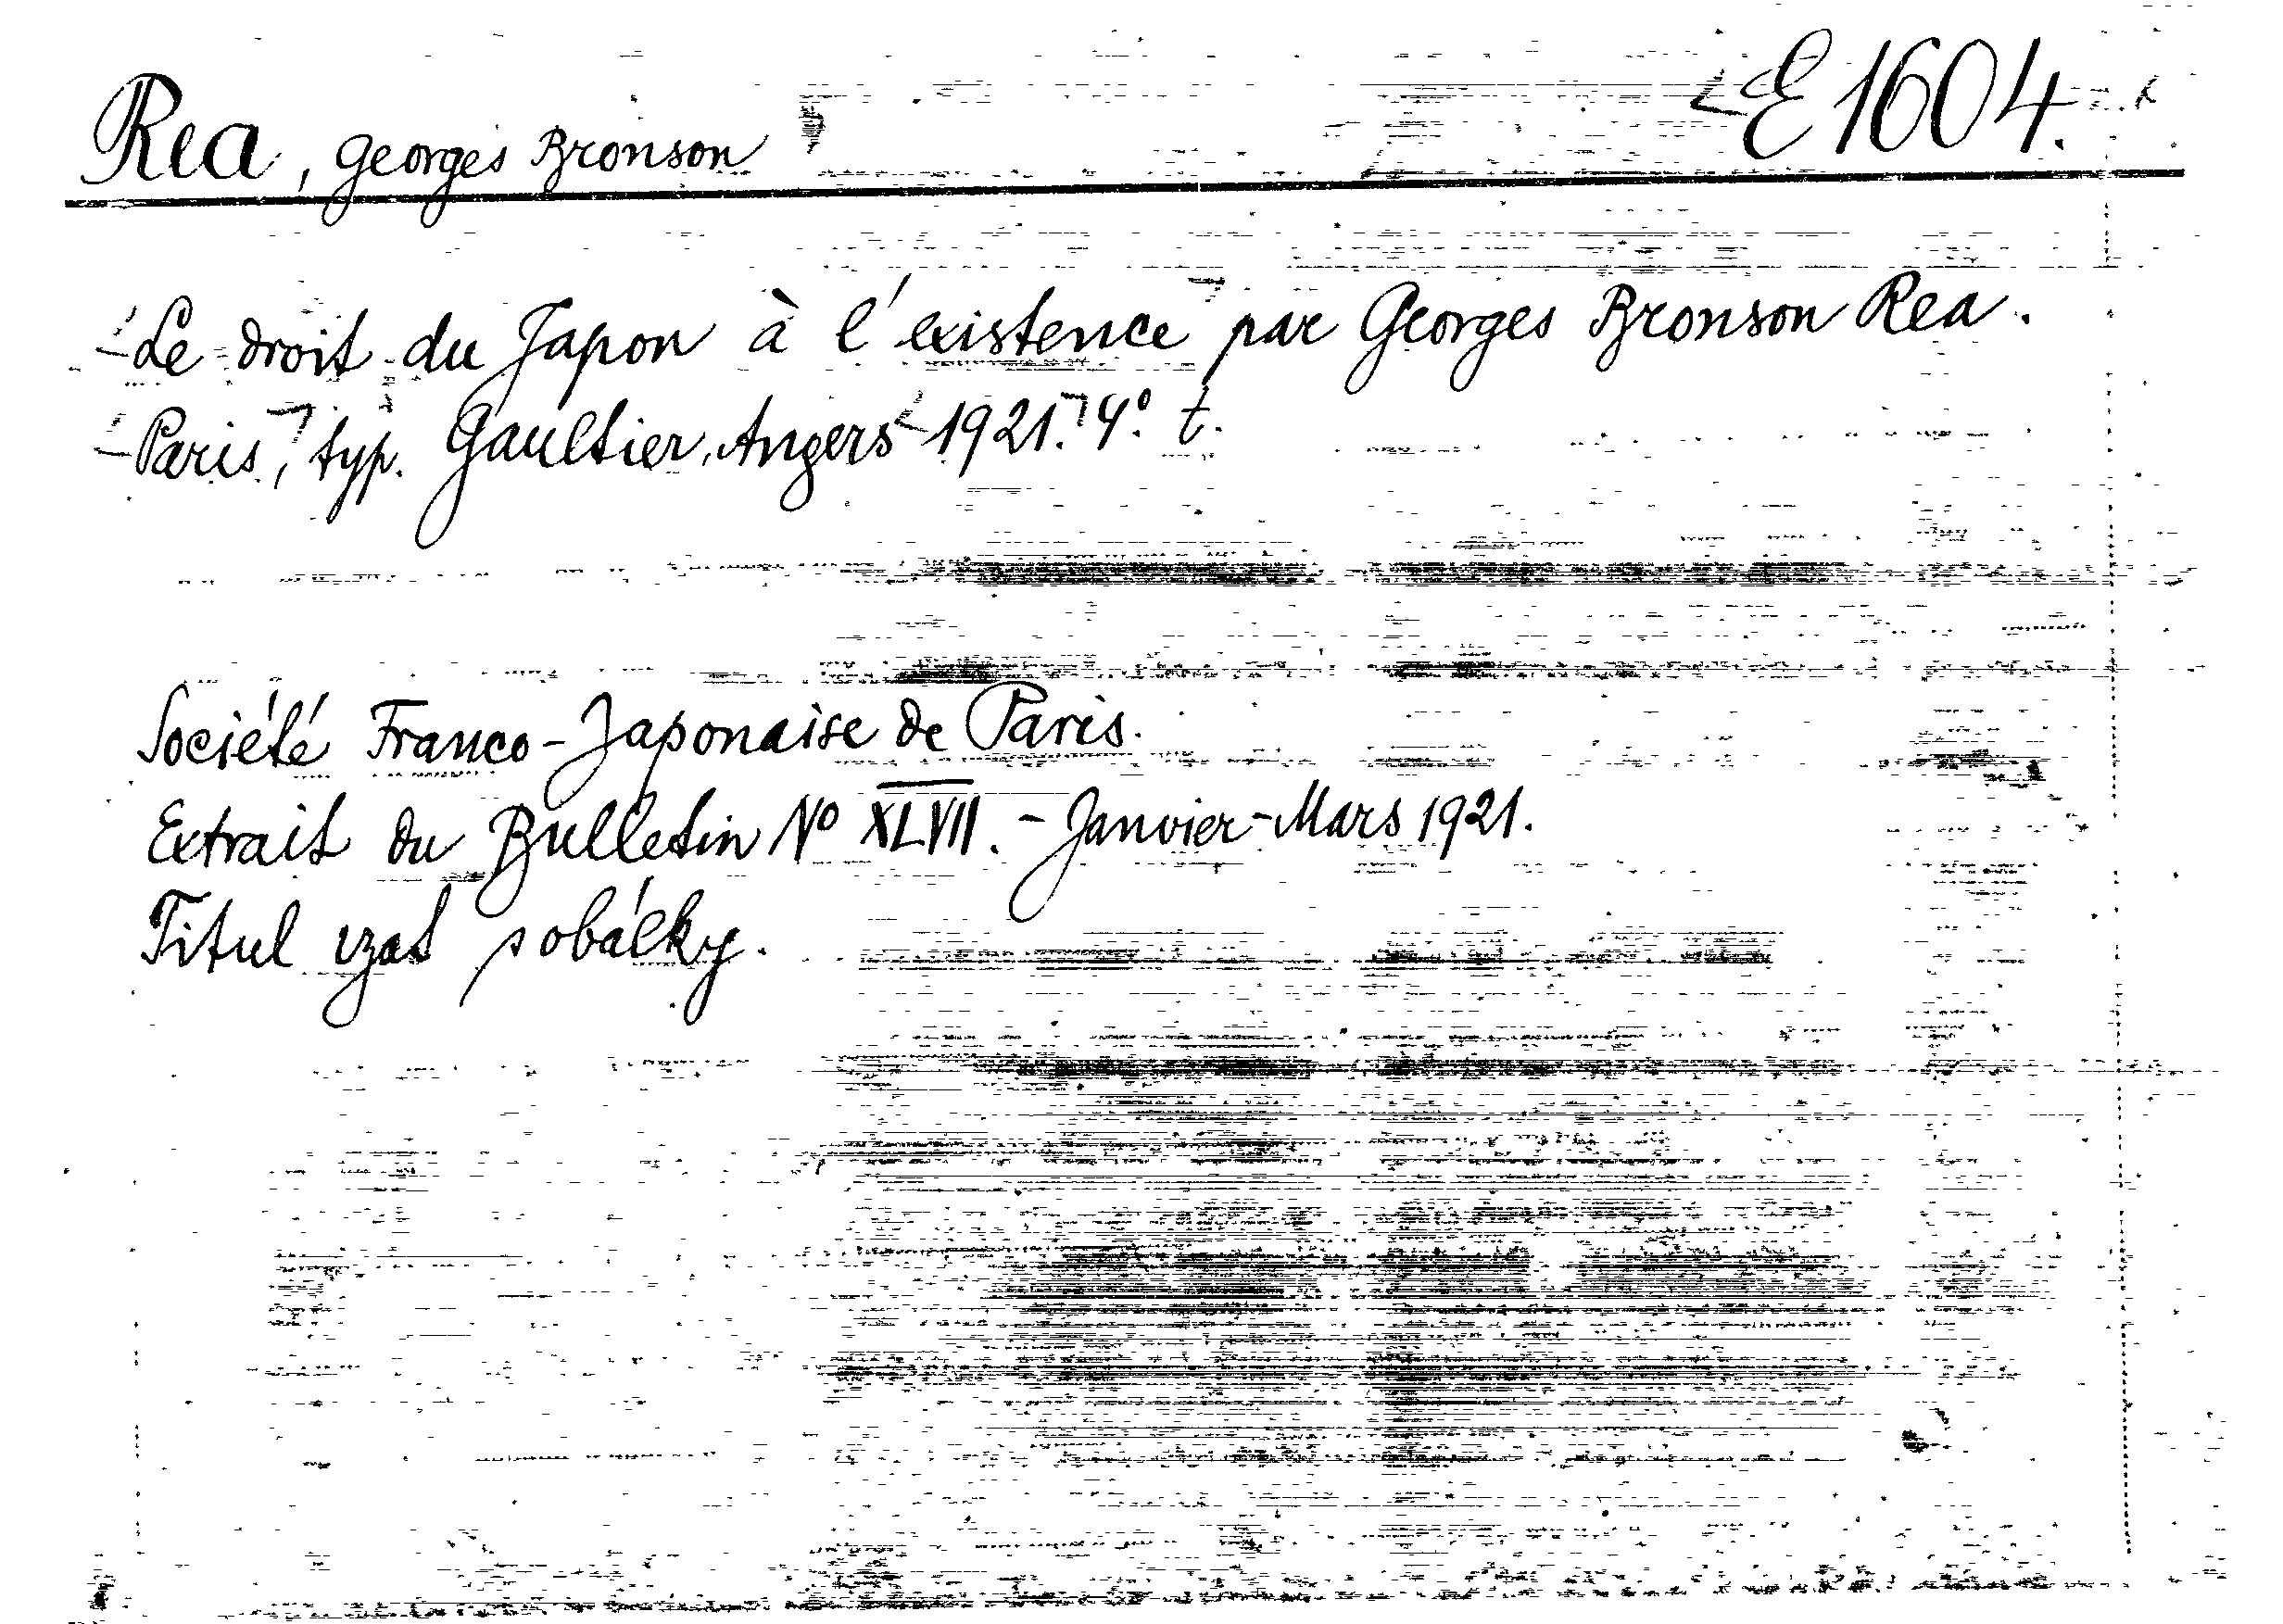 Rea, Georges Bronson
E 1604.
Le droit du Japon à l'existence par Georges Bronson Rea.
Paris, typ. Gaultier, Angers 1921. 4°. t.
Société Franco-Japonaise de Paris.
Extrait du Bulletin No XLVII. - Janvier-Mars 1921.
Titul vzat s obálky.